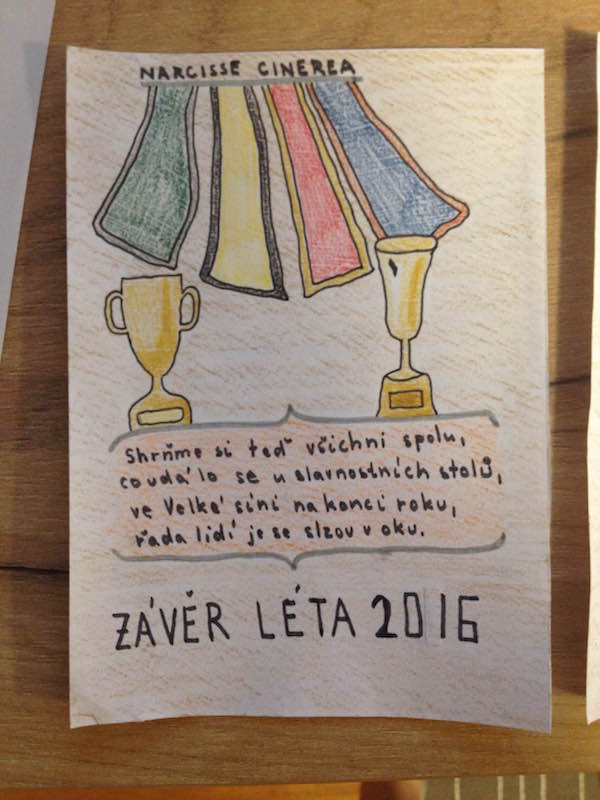 NARCISSE CINEREA
Shrňme si teď všichni spolu,
co událo se u slavnostních stolů,
ve Velké síni na konci roku,
řada lidí je se slzou v oku.
ZÁVĚR LÉTA 2016